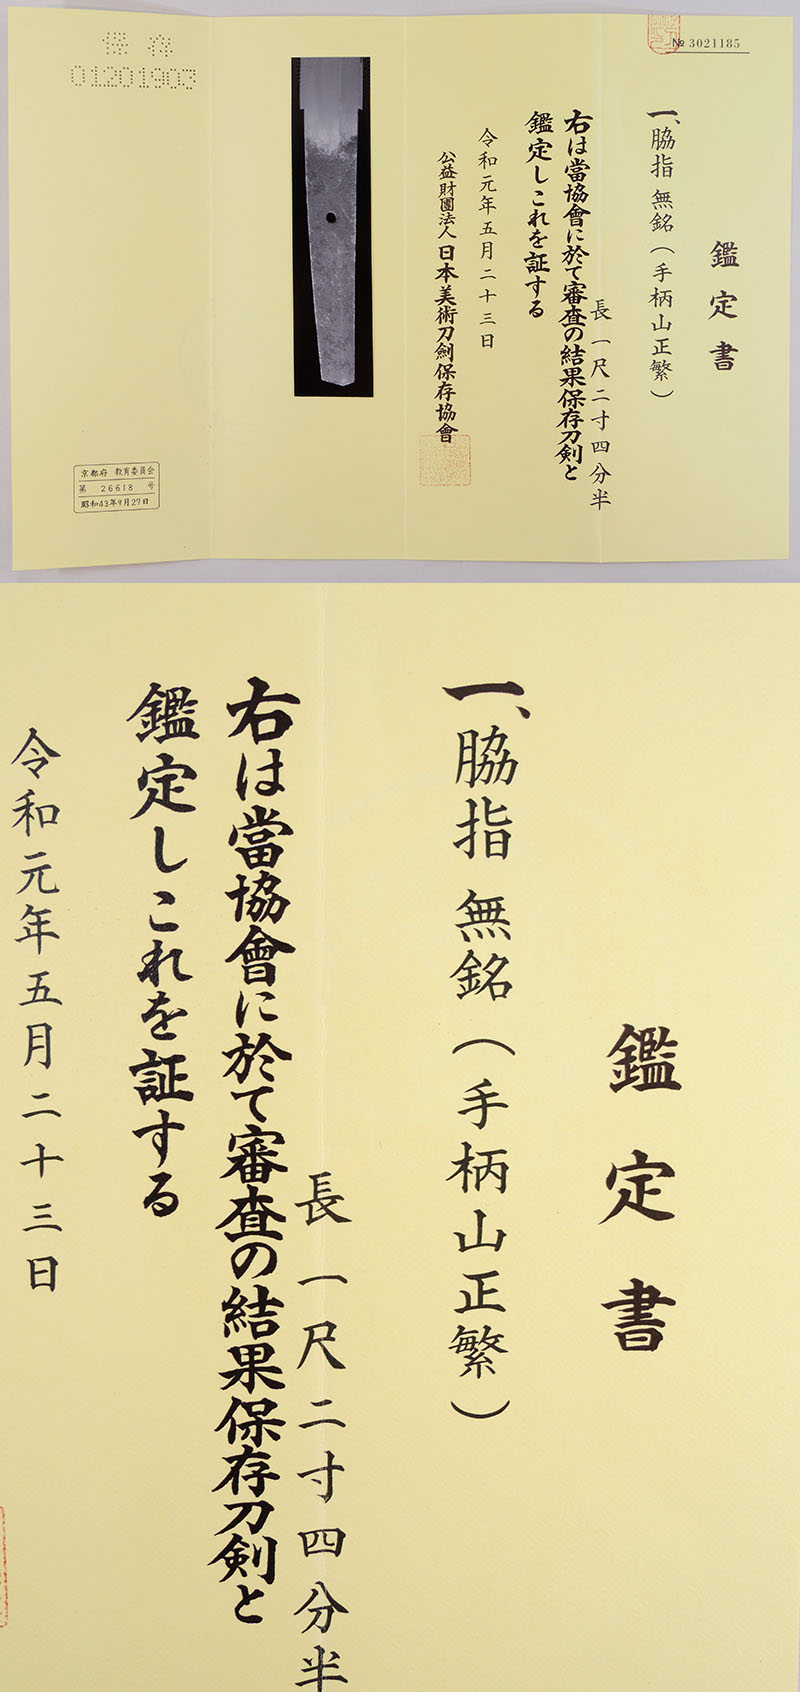 № 3021185
鑑定書
一、脇指 無銘（手柄山正繁）
長 一尺二寸四分半
右は當協會に於て審査の結果保存刀剣と
鑑定しこれを証する
令和元年五月二十三日
公益財團法人 日本美術刀劍保存協會
保存
01201903
京都府 教育委員会
第 26618 号
昭和43年9月27日
鑑定書
一、脇指 無銘（手柄山正繁）
長 一尺二寸四分半
右は當協會に於て審査の結果保存刀剣と
鑑定しこれを証する
令和元年五月二十三日